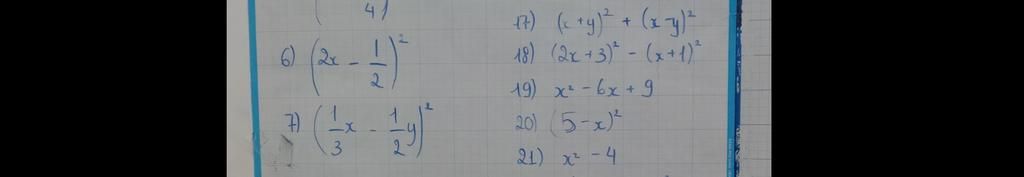 4)
6) (2x - 1/2)²
7) (1/3 x - 1/2 y)²
17) (x+y)² + (x-y)²
18) (2x+3)² - (x+1)²
19) x² - 6x + 9
20) (5-x)²
21) x² - 4